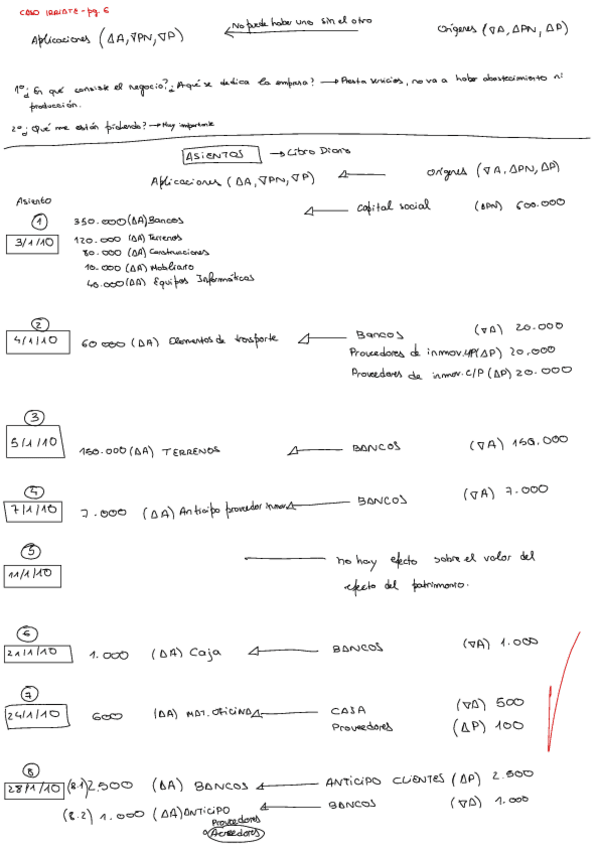 CASO IRRIATE - pg. 6
Aplicaciones (ΔA, ∇PN, ∇P) No puede haber uno sin el otro Orígenes (∇A, ΔPN, ΔP)
1º ¿En qué consiste el negocio? ¿A qué se dedica la empresa? → Presta servicios, no va a haber abastecimiento ni
producción.
2º ¿Qué me están pidiendo? → Muy importante
ASIENTOS → Libro Diario
Aplicaciones (ΔA, ∇PN, ∇P) ← orígenes (∇A, ΔPN, ΔP)
Asiento
1 350.000 (ΔA) Bancos ← capital social (ΔPN) 600.000
3/1/10 120.000 (ΔA) Terrenos
80.000 (ΔA) Construcciones
10.000 (ΔA) Mobiliario
40.000 (ΔA) Equipos Informáticos
2
4/1/10 60.000 (ΔA) Elementos de transporte ← Bancos (∇A) 20.000
Proveedores de inmov. L/P (ΔP) 20.000
Proveedores de inmov. C/P (ΔP) 20.000
3
5/1/10 150.000 (ΔA) TERRENOS ← BANCOS (∇A) 150.000
4
7/1/10 7.000 (ΔA) Anticipo proveedor inmov. ← BANCOS (∇A) 7.000
5
11/1/10 no hay efecto sobre el valor del
efecto del patrimonio.
6
21/1/10 1.000 (ΔA) Caja ← BANCOS (∇A) 1.000
7
24/1/10 600 (ΔA) MAT. OFICINA ← CAJA (∇A) 500
Proveedores (ΔP) 100
8
28/1/10 (8.1) 2.500 (ΔA) BANCOS ← ANTICIPO CLIENTES (ΔP) 2.500
(8.2) 1.000 (ΔA) ANTICIPO ← BANCOS (∇A) 1.000
Proveedores
o Acreedores